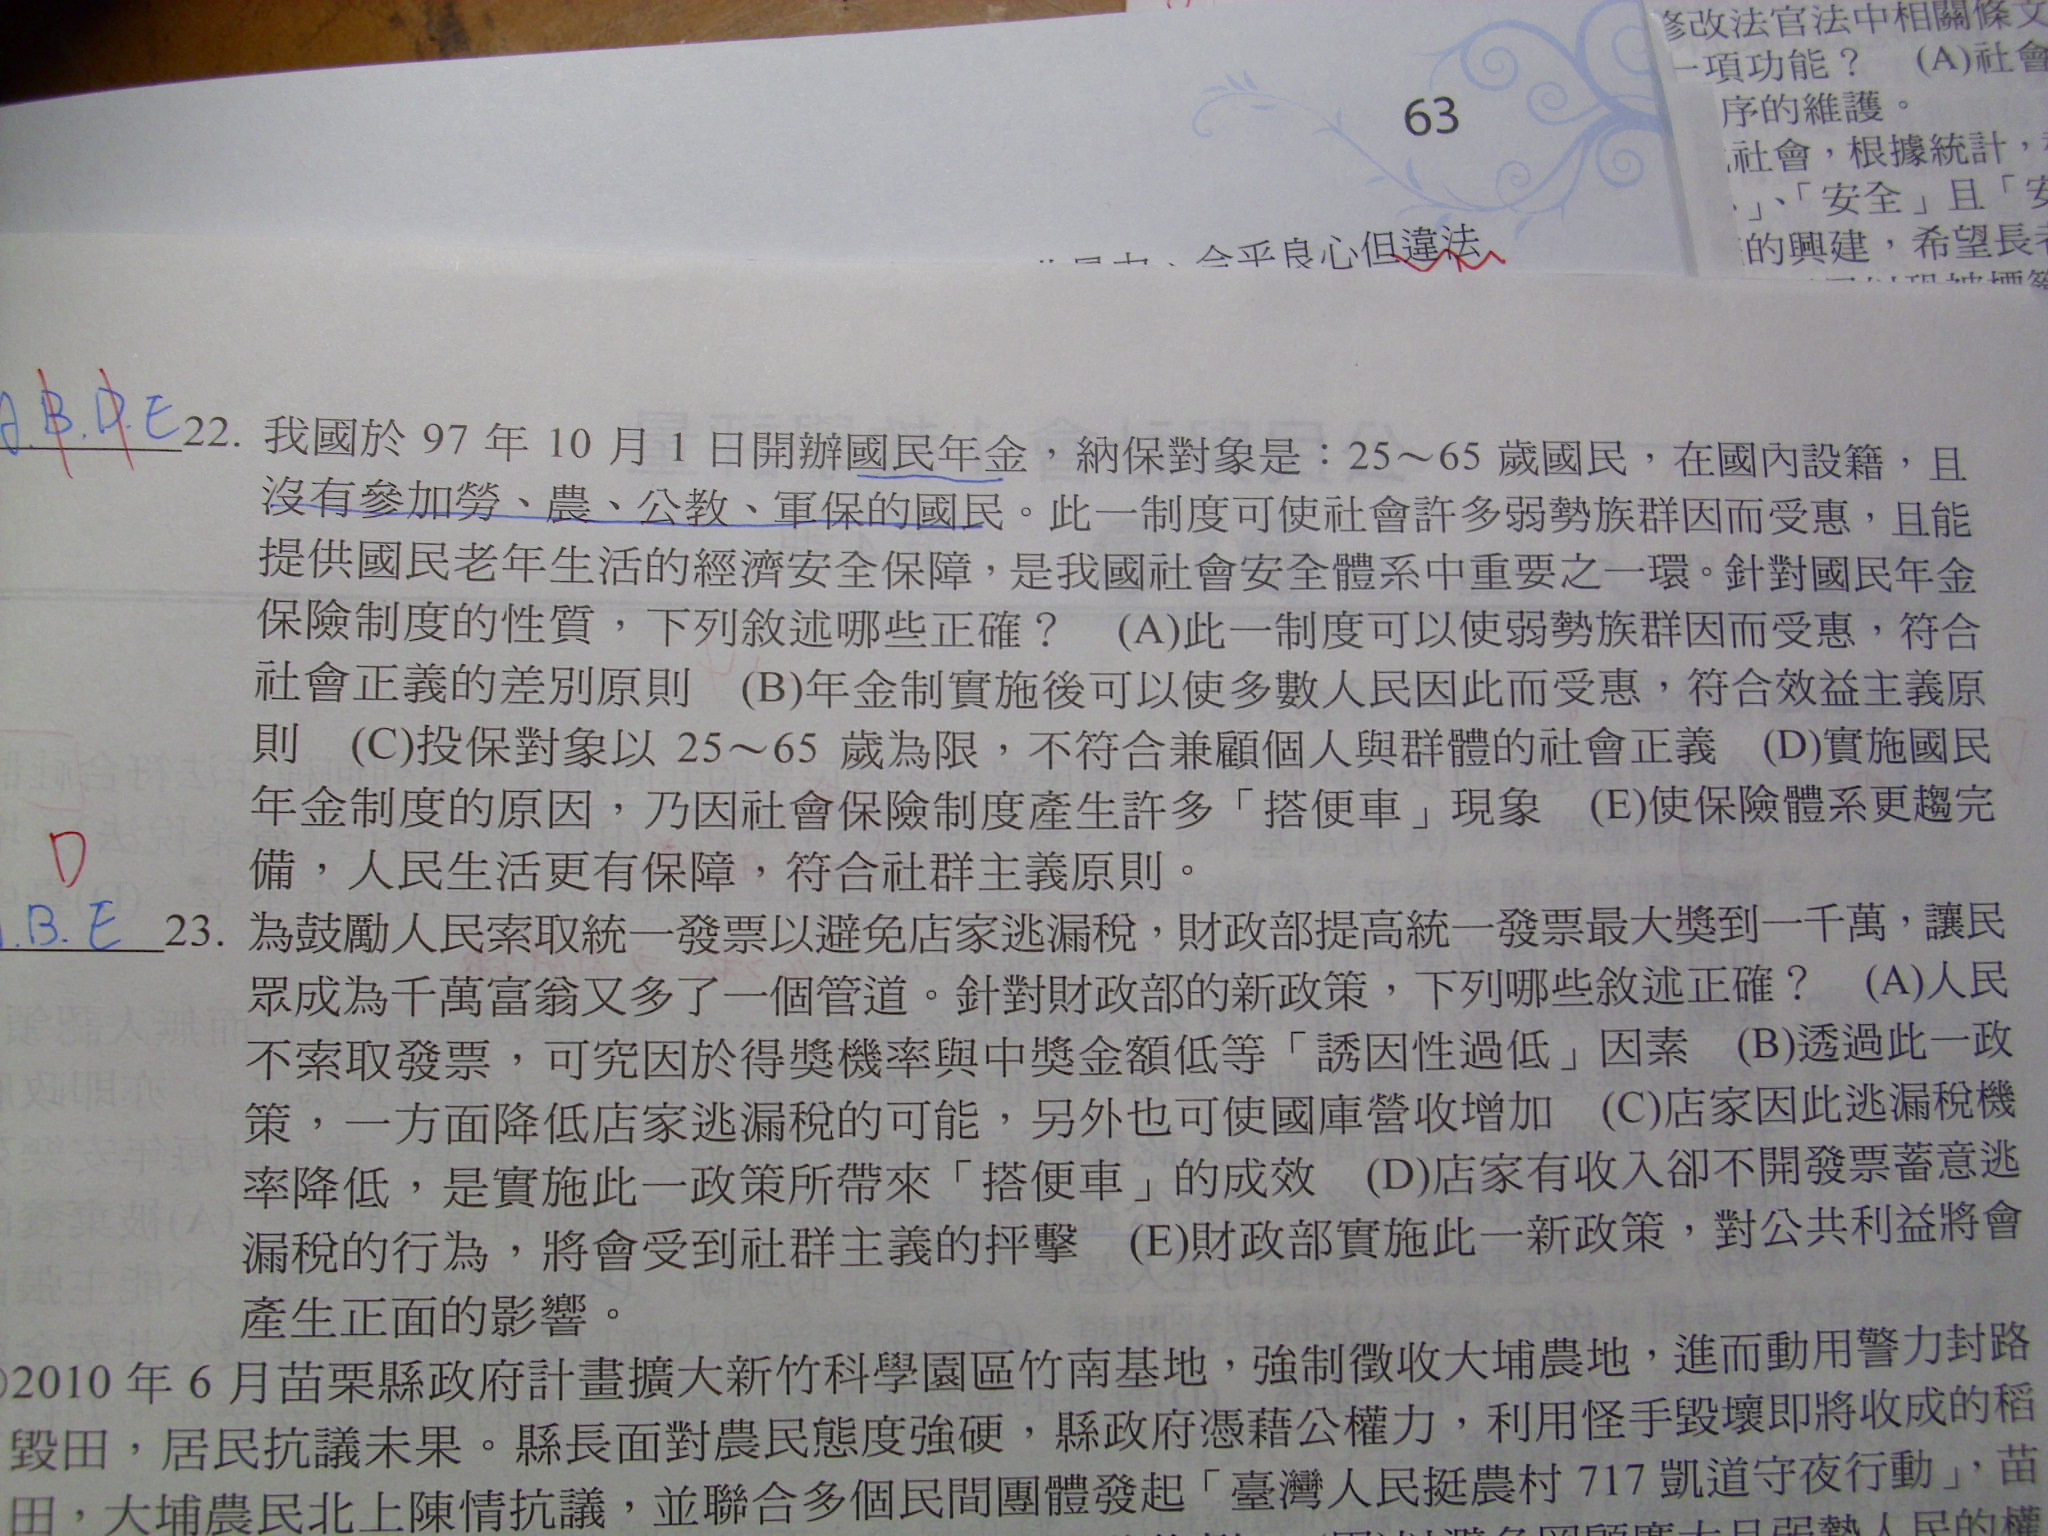 修改法官法中相關條文
一項功能？ (A)社會
序的維護。
社會，根據統計，
」、「安全」且「安
的興建，希望長者
63
合乎良心但違法
A.B.D.E 22. 我國於 97 年 10 月 1 日開辦國民年金，納保對象是：25～65 歲國民，在國內設籍，且
沒有參加勞、農、公教、軍保的國民。此一制度可使社會許多弱勢族群因而受惠，且能
提供國民老年生活的經濟安全保障，是我國社會安全體系中重要之一環。針對國民年金
保險制度的性質，下列敘述哪些正確？ (A)此一制度可以使弱勢族群因而受惠，符合
社會正義的差別原則 (B)年金制實施後可以使多數人民因此而受惠，符合效益主義原
則 (C)投保對象以 25～65 歲為限，不符合兼顧個人與群體的社會正義 (D)實施國民
年金制度的原因，乃因社會保險制度產生許多「搭便車」現象 (E)使保險體系更趨完
備，人民生活更有保障，符合社群主義原則。
D
.B.E 23. 為鼓勵人民索取統一發票以避免店家逃漏稅，財政部提高統一發票最大獎到一千萬，讓民
眾成為千萬富翁又多了一個管道。針對財政部的新政策，下列哪些敘述正確？ (A)人民
不索取發票，可究因於得獎機率與中獎金額低等「誘因性過低」因素 (B)透過此一政
策，一方面降低店家逃漏稅的可能，另外也可使國庫營收增加 (C)店家因此逃漏稅機
率降低，是實施此一政策所帶來「搭便車」的成效 (D)店家有收入卻不開發票蓄意逃
漏稅的行為，將會受到社群主義的抨擊 (E)財政部實施此一新政策，對公共利益將會
產生正面的影響。
2010 年 6 月苗栗縣政府計畫擴大新竹科學園區竹南基地，強制徵收大埔農地，進而動用警力封路
毀田，居民抗議未果。縣長面對農民態度強硬，縣政府憑藉公權力，利用怪手毀壞即將收成的稻
田，大埔農民北上陳情抗議，並聯合多個民間團體發起「臺灣人民挺農村 717 凱道守夜行動」，苗